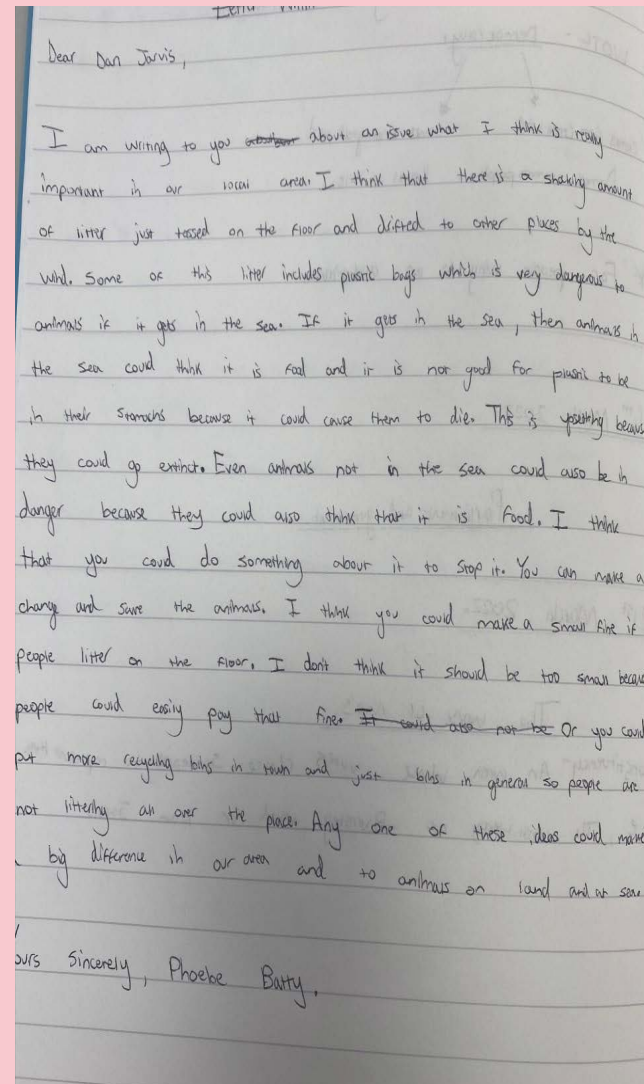 Dear Dan Jarvis,
I am writing to you about an issue what I think is really
important in our local area. I think that there is a shaking amount
of litter just tossed on the floor and drifted to other places by the
wind. Some of this litter includes plastic bags which is very dangerous to
animals if it gets in the sea. If it gets in the sea, then animals in
the sea could think it is food and it is not good for plastic to be
in their stomachs because it could cause them to die. This is upsetting becaus
they could go extinct. Even animals not in the sea could also be in
danger because they could also think that it is food. I think
that you could do something about it to stop it. You can make a
change and save the animals. I think you could make a small fine if
people litter on the floor. I don't think it should be too small becaus
people could easily pay that fine. It could also not be Or you could
put more recycling bins in town and just bins in general so people are
not littering all over the place. Any one of these ideas could make
big difference in our area and to animals on land and at sea.
ours Sincerely, Phoebe Batty.